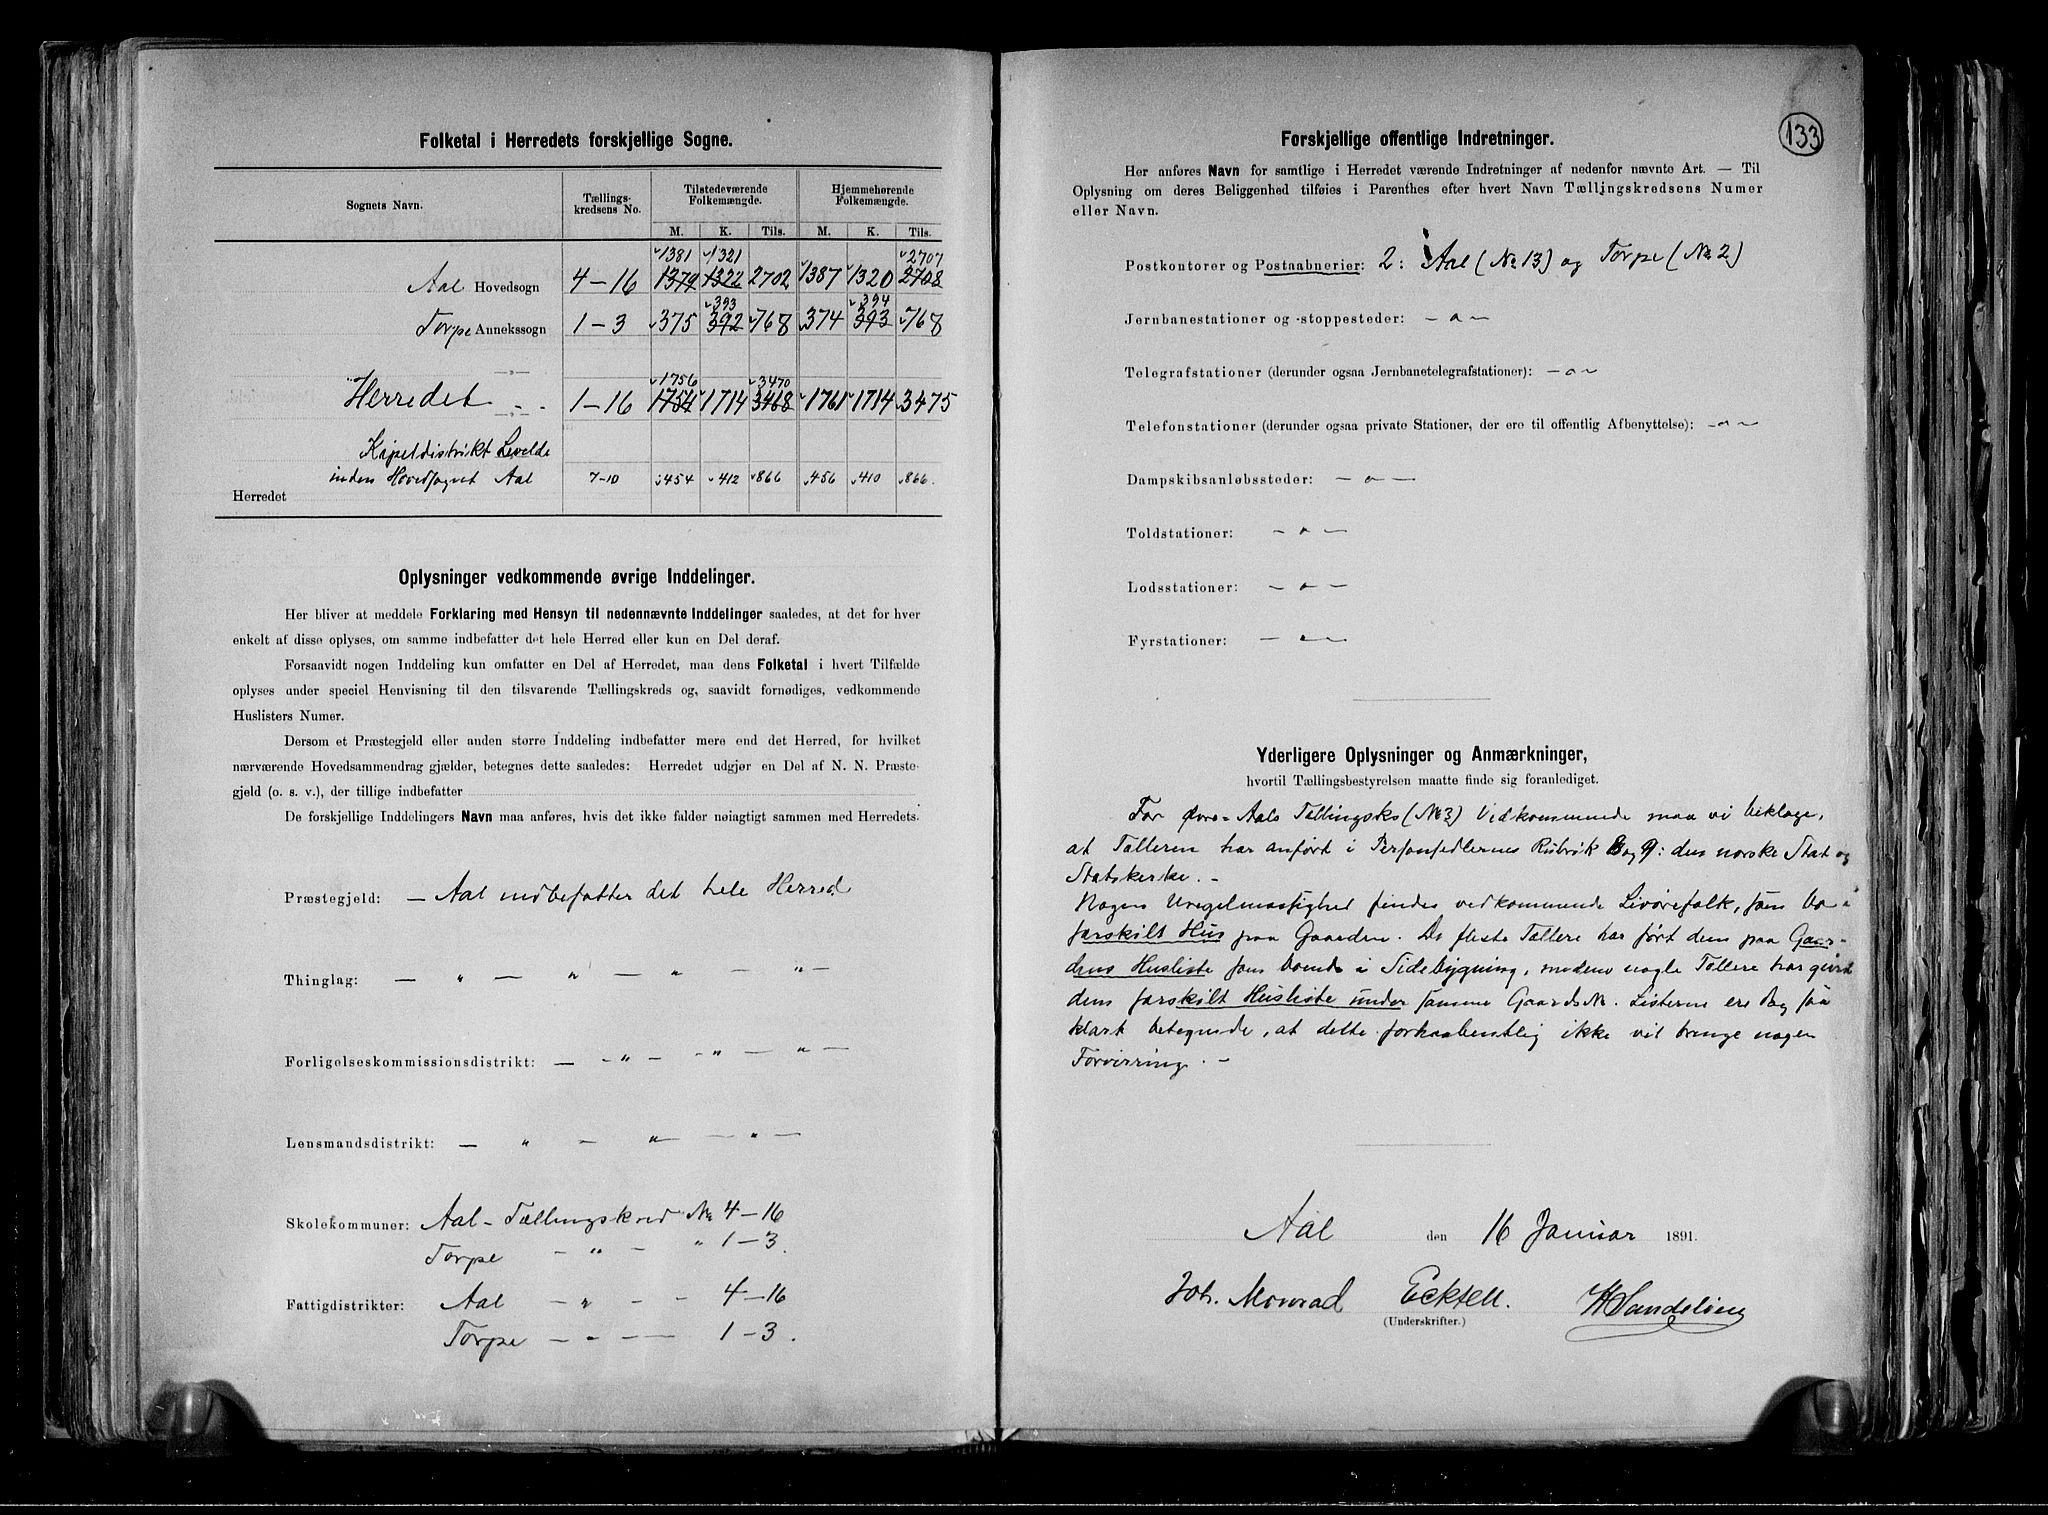 Folketal i Herredets forskjellige Sogne.
Sognets Navn. Tællings-kredsens No. Tilstedeværende Folkemængde. Hjemmehørende Folkemængde.
M. K. Tils. M. K. Tils.
1381 1321 2707
Aal Hovedsogn 4-16 1379 1322 2702 1387 1320 2708
393 394
Torpe Annekssogn 1-3 375 392 768 374 393 768
1756 3470
Herredet 1-16 1754 1714 3468 1761 1714 3475
Kapeldistrikt Levelde
inden Hovedsognet Aal 7-10 454 412 866 456 410 866.
Herredet
Oplysninger vedkommende øvrige Inddelinger.
Her bliver at meddele Forklaring med Hensyn til nedennævnte Inddelinger saaledes, at det for hver
enkelt af disse oplyses, om samme indbefatter det hele Herred eller kun en Del deraf.
Forsaavidt nogen Inddeling kun omfatter en Del af Herredet, maa dens Folketal i hvert Tilfælde
oplyses under speciel Henvisning til den tilsvarende Tællingskreds og, saavidt fornødiges, vedkommende
Huslisters Numer.
Dersom et Præstegjeld eller anden større Inddeling indbefatter mere end det Herred, for hvilket
nærværende Hovedsammendrag gjælder, betegnes dette saaledes: Herredet udgjør en Del af N. N. Præste-
gjeld (o. s. v.), der tillige indbefatter
De forskjellige Inddelingers Navn maa anføres, hvis det ikke falder nøiagtigt sammen med Herredets.
Præstegjeld: — Aal indbefatter det hele Herred
Thinglag: — " — " — " — " —
Forligelseskommissionsdistrikt: — - " — - " — " —
Lensmandsdistrikt: — " — " — " —
Skolekommuner: Aal - Tællingskred No 4-16
Torpe - " - " 1-3.
Fattigdistrikter: Aal - " - - 4-16
Torpe - - — 1-3.
133
Forskjellige offentlige Indretninger.
Her anføres Navn for samtlige i Herredet værende Indretninger af nedenfor nævnte Art. — Til
Oplysning om deres Beliggenhed tilføies i Parenthes efter hvert Navn Tællingskredsens Numer
eller Navn.
Postkontorer og Postaabnerier: 2: Aal (No 13) og Torpe (No 2)
Jernbanestationer og -stoppesteder: - o -
Telegrafstationer (derunder ogsaa Jernbanetelegrafstationer): - o -
Telefonstationer (derunder ogsaa private Stationer, der ere til offentlig Afbenyttelse): - o -
Dampskibsanløbssteder: - o -
Toldstationer: - o -
Lodsstationer: - o -
Fyrstationer: - o -
Yderligere Oplysninger og Anmærkninger,
hvortil Tællingsbestyrelsen maatte finde sig foranlediget.
For øvre-Aals Tællingsks (No 3) Vedkommende maa vi beklage,
at Tælleren har anført i Personsedlernes Rubrik 8 og 9: den norske Stat og
Statskirke. -
Nogen Uregelmæssighed findes vedkommende Livørefolk, som bo i
særskilt Hus paa Gaarden. De fleste Tællere har ført dem paa Gaar-
dens Husliste som boende i Sidebygning, medens nogle Tællere har givet
dem særskilt Husliste under samme Gaards No. Listerne ere dog saa
klart betegnede, at dette forhaabentlig ikke vil bringe nogen
Forvirring. -
Aal den 16 Januar 1891.
Joh. Monrad Ecktell.
(Underskrifter.)